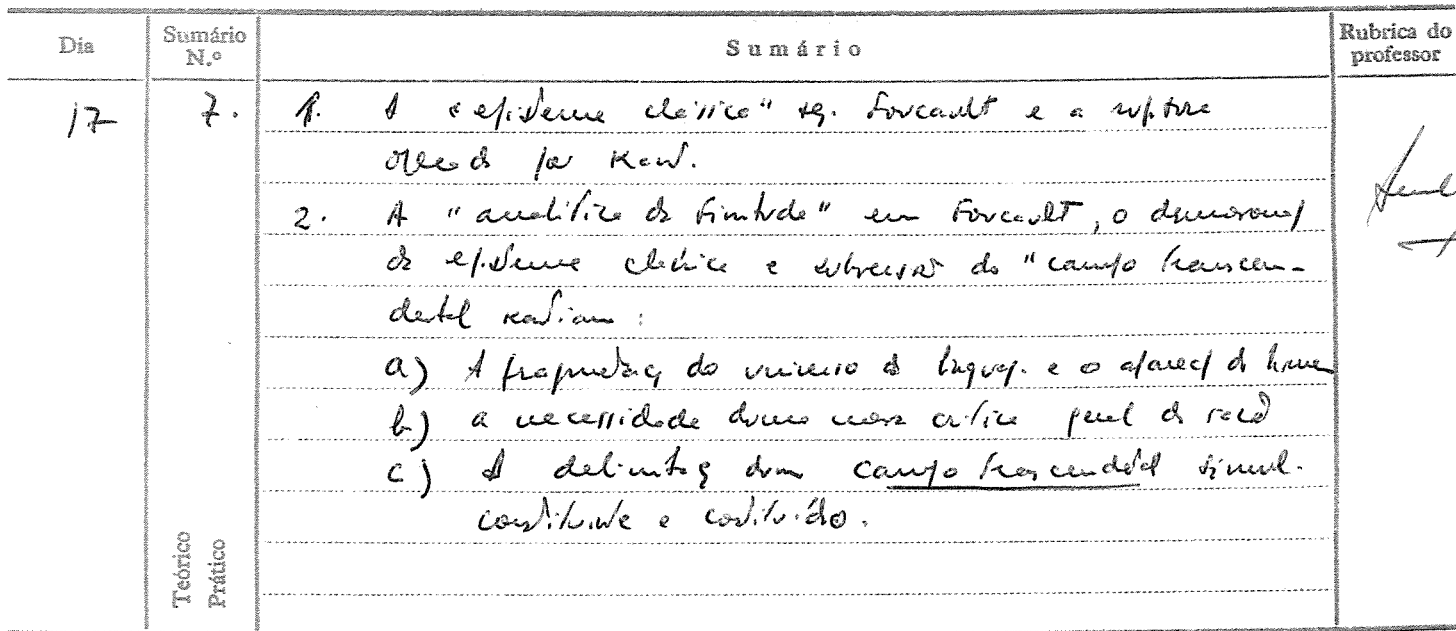 Dia
Sumário N.º
Sumário
Rubrica do professor
17 7. 1. A "episteme clássica" sg. Foucault e a ruptura
operada por Kant.
2. A "analítica da finitude" em Foucault, o
da episteme clássica e subversão do "campo transcen-
dental kantiano:
a) A fragmentaç do universo da linguag. e o aparec do homem
b) a necessidade duma nova crítica geral da razão
c) A delimitaç dum campo transcendental simul.
constituinte e constituído.
Teórico
Prático